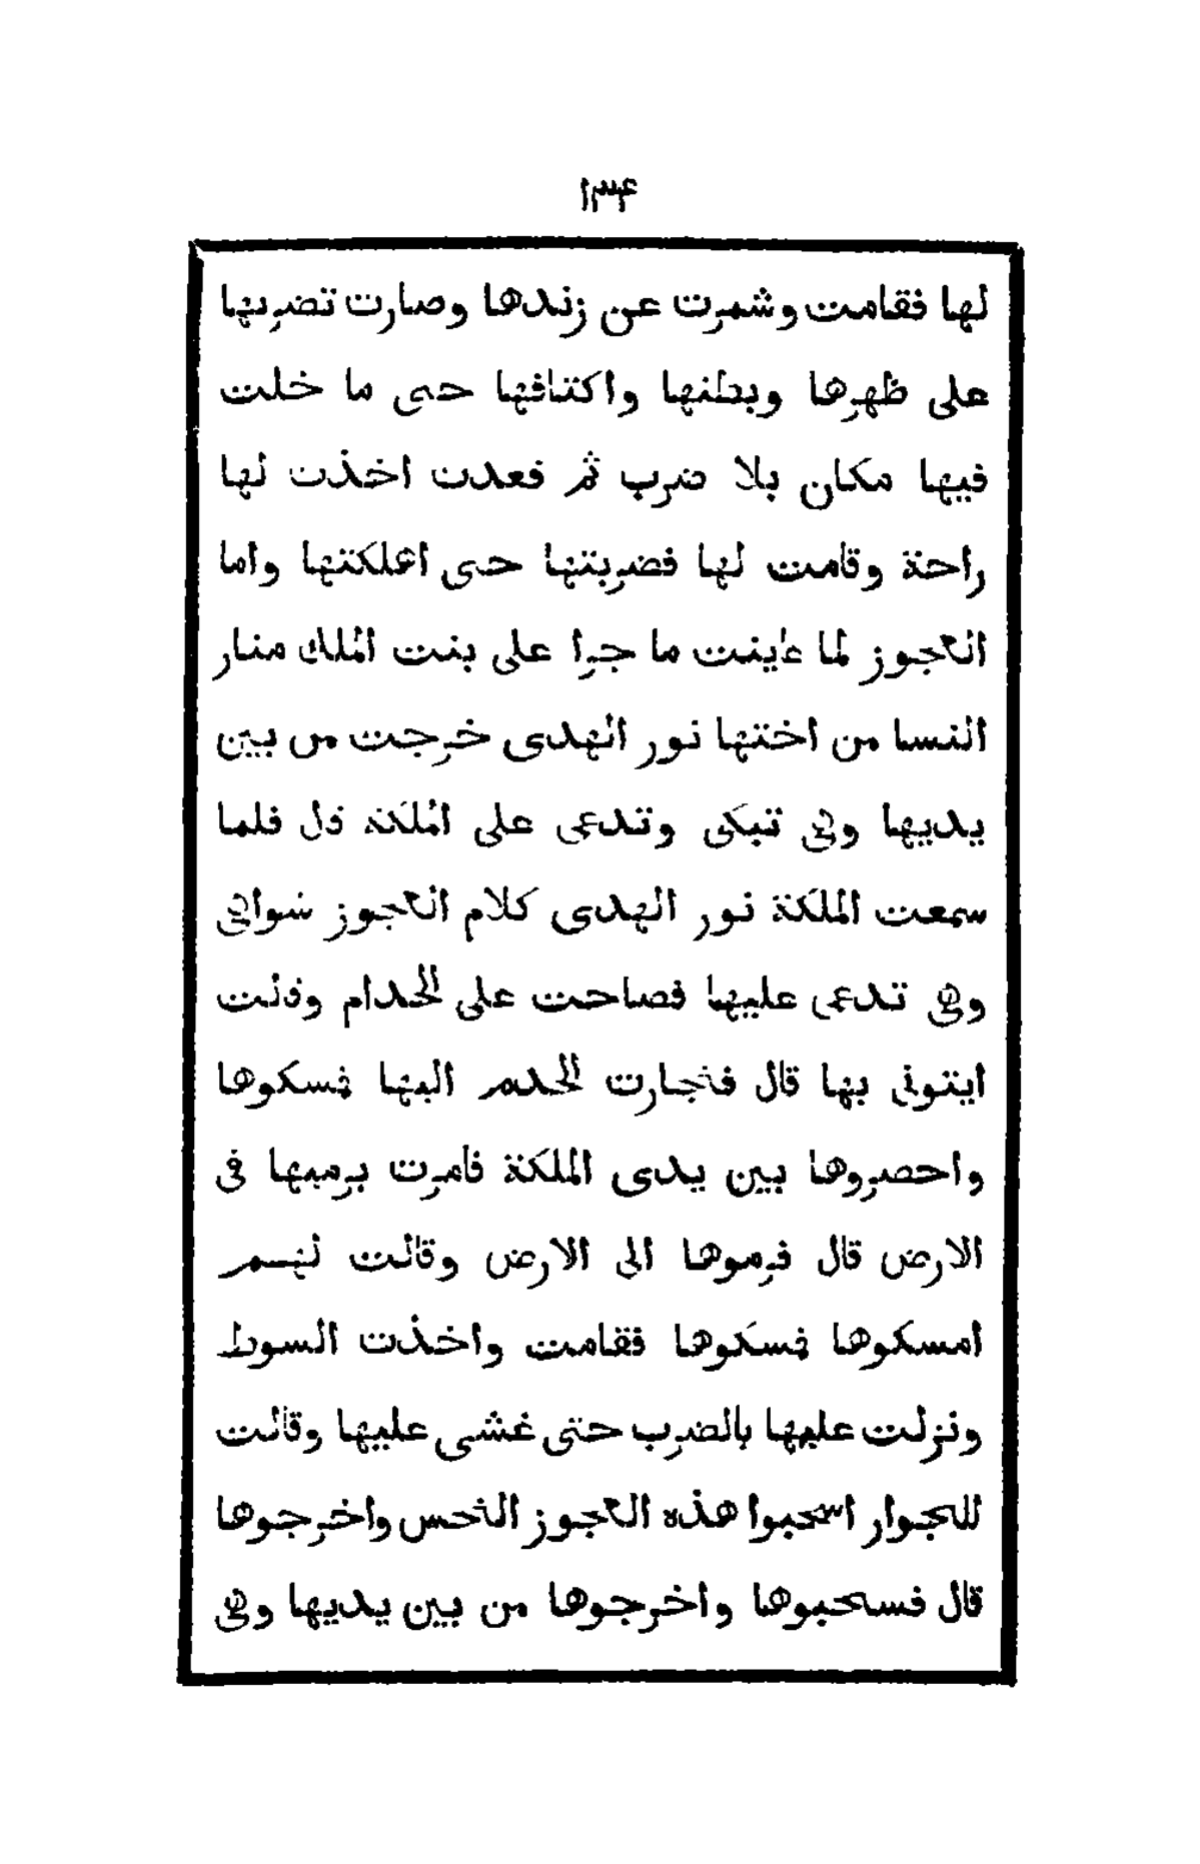 ١٣۴
لها فقامت وشمرت عن زندها وصارت تضربها
على ظهرها وبطنها واكتافها حتى ما خلت
فيها مكان بلا ضرب ثم قعدت اخذت لها
راحة وقامت لها فضربتها حتى اهلكتها واما
العجوز لما عاينت ما جرا على بنت الملك منار
النسا من اختها نور الهدى خرجت من بين
يديها وهى تبكى وتدعى على الملكة قال فلما
سمعت الملكة نور الهدى كلام العجوز شواهى
وهى تدعى عليها فصاحت على الخدام وقالت
ايتونى بها قال فتجارت الخدم اليها فمسكوها
واحصروها بين يدى الملكة فامرت برميها فى
الارض قال فرموها الى الارض وقالت لهم
امسكوها فمسكوها فقامت واخذت السوط
ونزلت عليها بالضرب حتى غشى عليها وقالت
للجوار اسحبوا هذه العجوز النحس واخرجوها
قال فسحبوها واخرجوها من بين يديها وهى